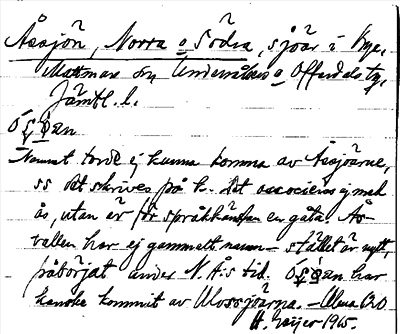 Åssjön, Norra o Södra, sjöar i Kyrk.
Mattmar sn, Undersåkers o Offerdals tg,
Jämtl. l.
Namnet torde ej kunna komma av Åssjöarne,
ss det skrives på k. Det associeras ej med
ås, utan är för språkkänslan en gåta. Ås-
vallen har ej gammalt namn – stället är nytt,
påbörjat under N. A:s tid. har
kanske kommit av Mossjöarna. –
H. Geijer 1915.